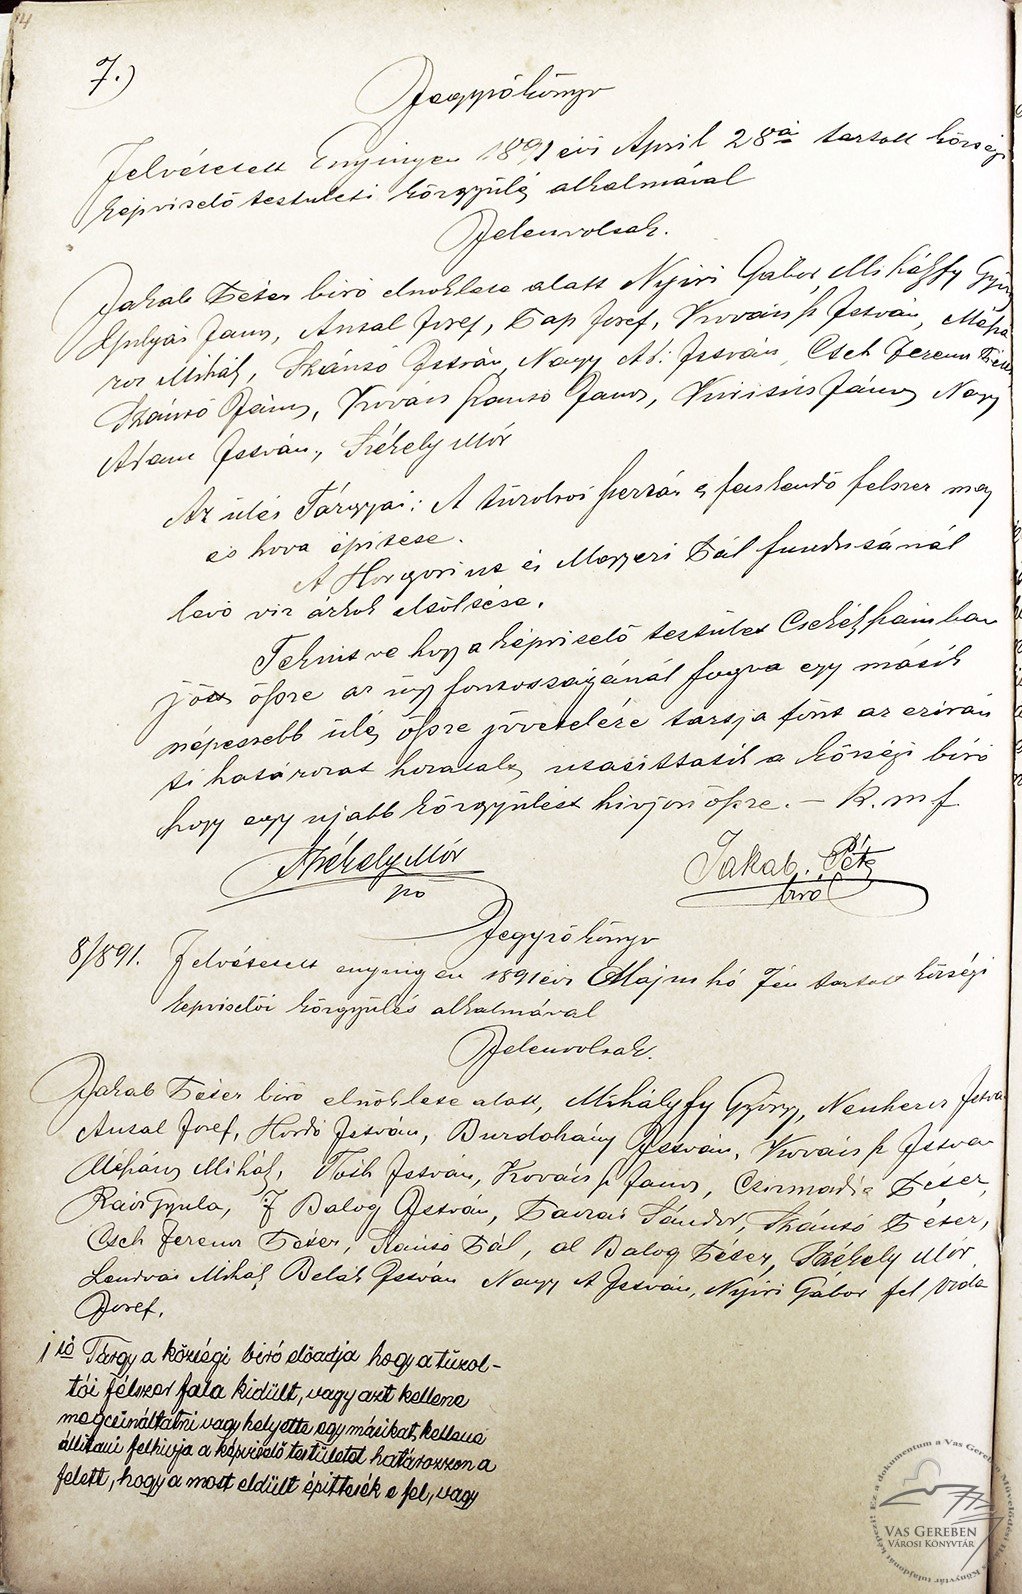 7.)
Jegyzőkönyv
Felvétetett Enyingen 1891 évi April 28án tartott községi
képviselő testületi közgyűlés alkalmával
Jelenvoltak.
Jakab Péter biró elnöklete alatt Nyiri Gábor, Mihályfy György
Gulyás Janos, Antal Josef, Pap Josef, Kovács sz István, Mészá
ros Mihály, Szántó István, Nagy Ad: István, Cseh Ferenc Péter
Szántó János, Kovács Szanto Janos, János Nagy
Adam István, Székely Mór
Az ülés Tárgyai: A tűzoltói szertár és felszer meg
és hova épitese.
A és Magyeri Pál fundusánál
levő viz árkok eltöltése.
Tekintve hogy a képviselő testület Csekély számban
jött össze az ügy fontosságánál fogva egy másik
népessebb ülés össze jövetelére tartja fönt az ezirán
ti határozat hozatalt, utasittatik a községi biró
hogy egy ujabb közgyűlést hivjon össze. — K. m f.
Székely Mór
Jakab. Péter
biró
Jegyzőkönyv
8/891. Felvétetett enyingen 1891 évi Majus hó 7én tartott községi
képviselői közgyűlés alkalmával
Jelenvoltak.
Jakab Péter biró elnöklete alatt, Mihályfy György, István
Antal Josef, Hordó István, Burdohány István, Kovács sz Istvan
Mészáros Mihály, Tóth István, Kovács sz Janos, Csizmadia Péter,
Rácz Gyula, if Balog István, Sándor, Szántó Péter,
Cseh Ferenc Péter, Szántó Pál, al Balog Péter, Székely Mór
Lendvai Mihály Belák István Nagy A István, Nyiri Gábor fel Vida
Josef.
1 ső Tárgy a községi biró előadja hogy a tűzol-
tói félszer fala kidült, vagy azt kellene
megcsináltatni vagy helyette egy másikat kellene
állitani felhivja a képviselő testületet határozzon a
felett, hogy a most eldült épittessék e fel, vagy
Ez a dokumentum a Vas Gereben Művelődési Ház és Könyvtár tulajdonát képezi!
VAS GEREBEN
VÁROSI KÖNYVTÁR